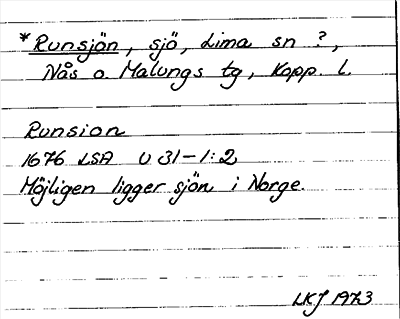 *Runsjön, sjö, Lima sn ?,
Nås o Malungs tg, Kopp. L.
Runsion
1676 LSA U 31-1:2
Möjligen ligger sjön i Norge.
LKJ 1973